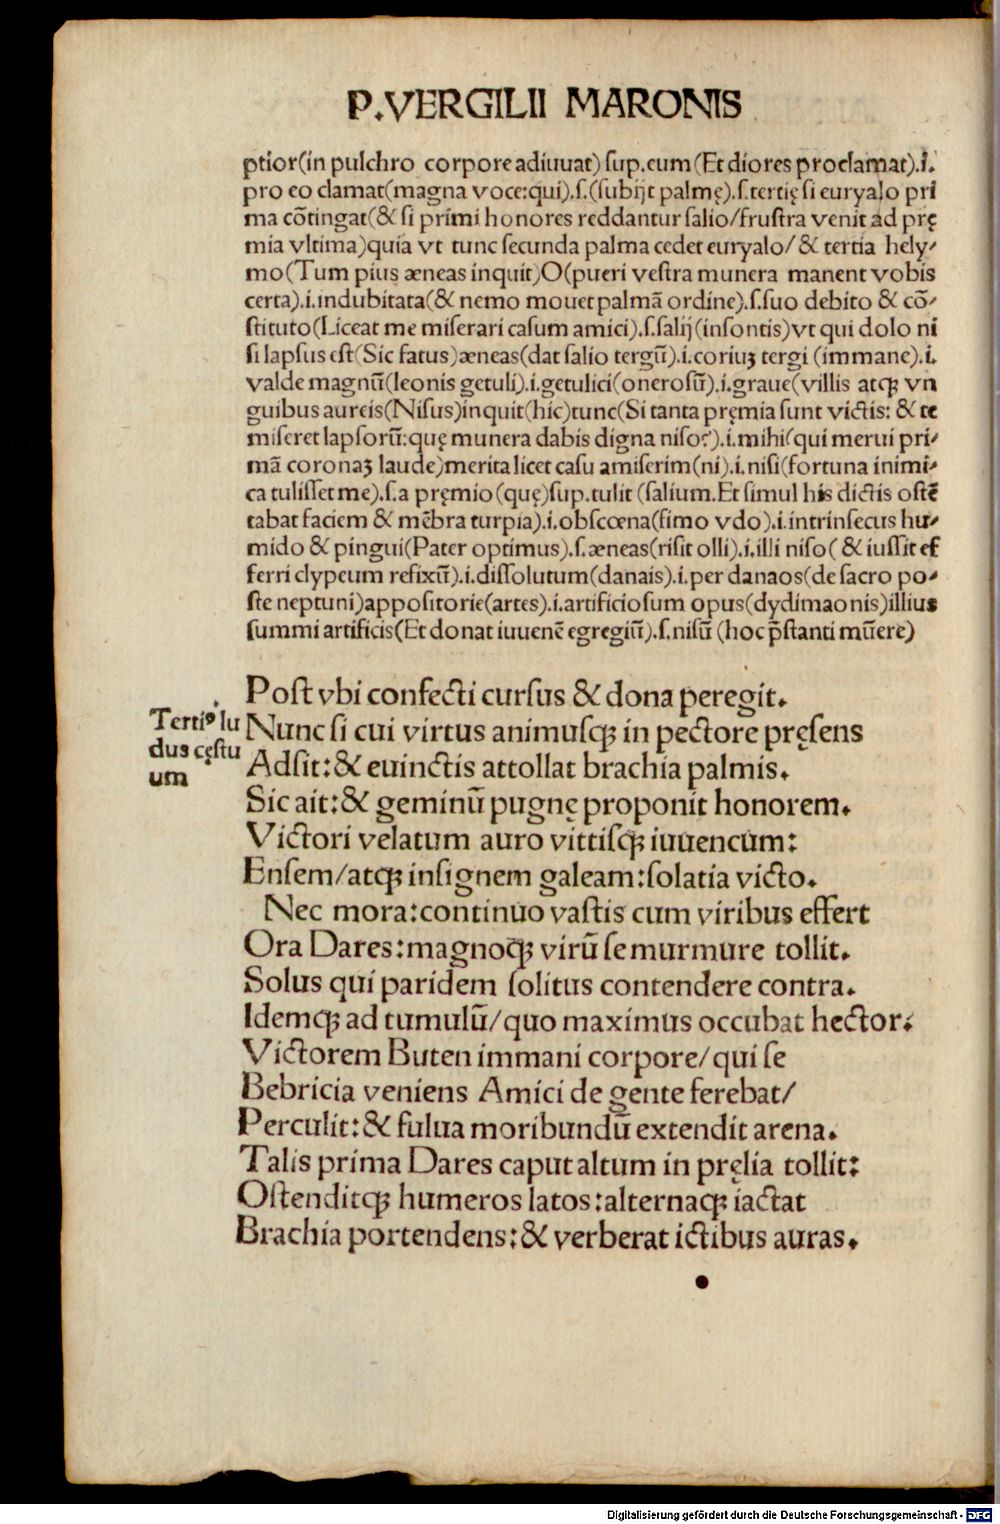 P.VERGILII MARONIS
ptior(in pulchro corpore adiuuat) sup.eum(Et diores proclamat).i.
pro eo clamat(magna voce:qui).s.(subijt palmę).s.tertię si euryalo pri
ma cōtingat(& si primi honores reddantur salio/frustra venit ad prę
mia vltima)quia vt tunc secunda palma cedet euryalo/& tertia hely-
mo(Tum pius æneas inquit)O(pueri vestra munera manent vobis
certa).i.indubitata(& nemo mouet palmā ordine).s.suo debito & cō-
stituto(Liceat me miserari casum amici).s.salij(insontis)vt qui dolo ni
si lapsus est(Sic fatus)æneas(dat salio tergū).i.coriuꝫ tergi (immane).i.
valde magnū(leonis getuli).i.getulici(onerosū).i.graue(villis atqꝫ vn
guibus aureis(Nisus)inquit(hic)tunc(Si tanta pręmia sunt victis: & te
miseret lapsorū:quę munera dabis digna niso?).i.mihi(qui merui pri-
mā coronaꝫ laude)merita licet casu amiserim(ni).i.nisi(fortuna inimi-
ca tulisset me).s.a pręmio(quę)sup.tulit (salium.Et simul his dictis ostē
tabat faciem & mēbra turpia).i.obscœna(fimo vdo).i.intrinsecus hu-
mido & pingui(Pater optimus).s.æneas(risit olli).i.illi niso(& iussit ef
ferri clypeum refixū).i.dissolutum(danais).i.per danaos(de sacro po-
ste neptuni)appositorie(artes).i.artificiosum opus(dydimaonis)illius
summi artificis(Et donat iuuenē egregiū).s.nisū (hoc p̄stanti mūere)
Post vbi confecti cursus & dona peregit.
Tertiꝰ lu
dus cęstu
um
Nunc si cui virtus animusqꝫ in pectore pręsens
Adsit:& euinctis attollat brachia palmis.
Sic ait:& geminū pugnę proponit honorem.
Victori velatum auro vittisqꝫ iuuencum:
Ensem/atqꝫ insignem galeam:solatia victo.
Nec mora:continuo vastis cum viribus effert
Ora Dares:magnoqꝫ virū se murmure tollit.
Solus qui paridem solitus contendere contra.
Idemqꝫ ad tumulū/quo maximus occubat hector:
Victorem Buten immani corpore/qui se
Bebricia veniens Amici de gente ferebat/
Perculit:& fulua moribundū extendit arena.
Talis prima Dares caput altum in pręlia tollit:
Ostenditqꝫ humeros latos:alternaqꝫ iactat
Brachia portendens:& verberat ictibus auras.
Digitalisierung gefördert durch die Deutsche Forschungsgemeinschaft - DFG